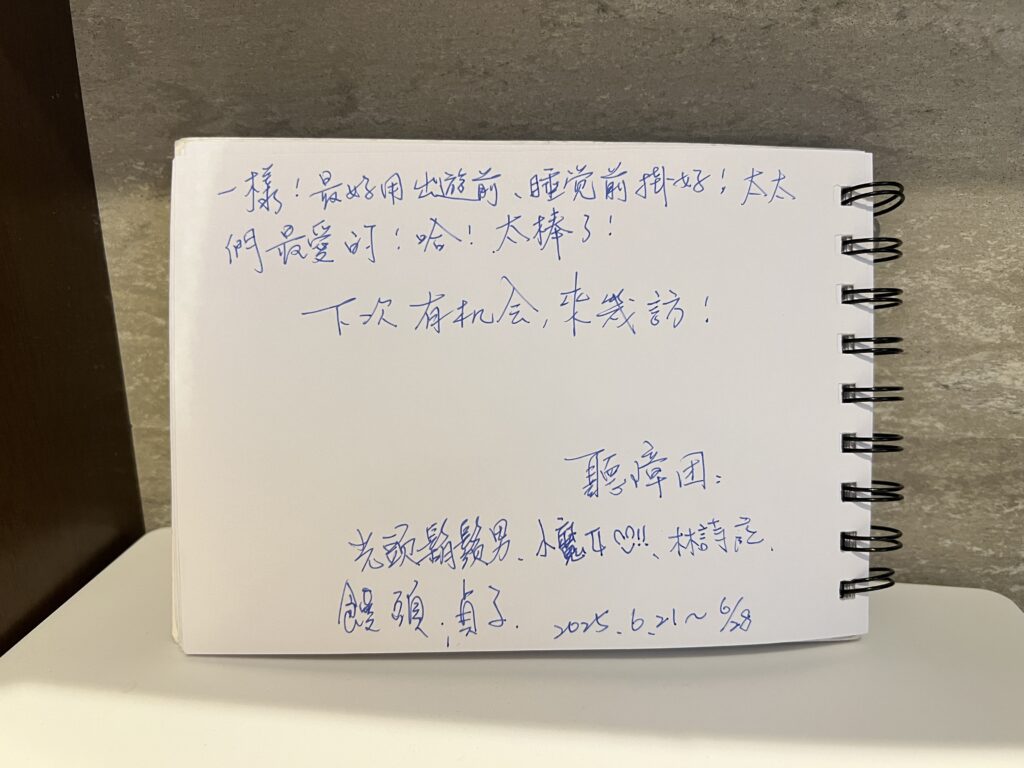 一樣！最好用出遊前、睡觉前掛好！太太
們最愛的！哈！太棒了！
下次有机会，來幾訪！
聽障团：
光頭鬍鬚男、小魔女♡!!、林詩
饅頭、貞子．2025.6.21～6/28